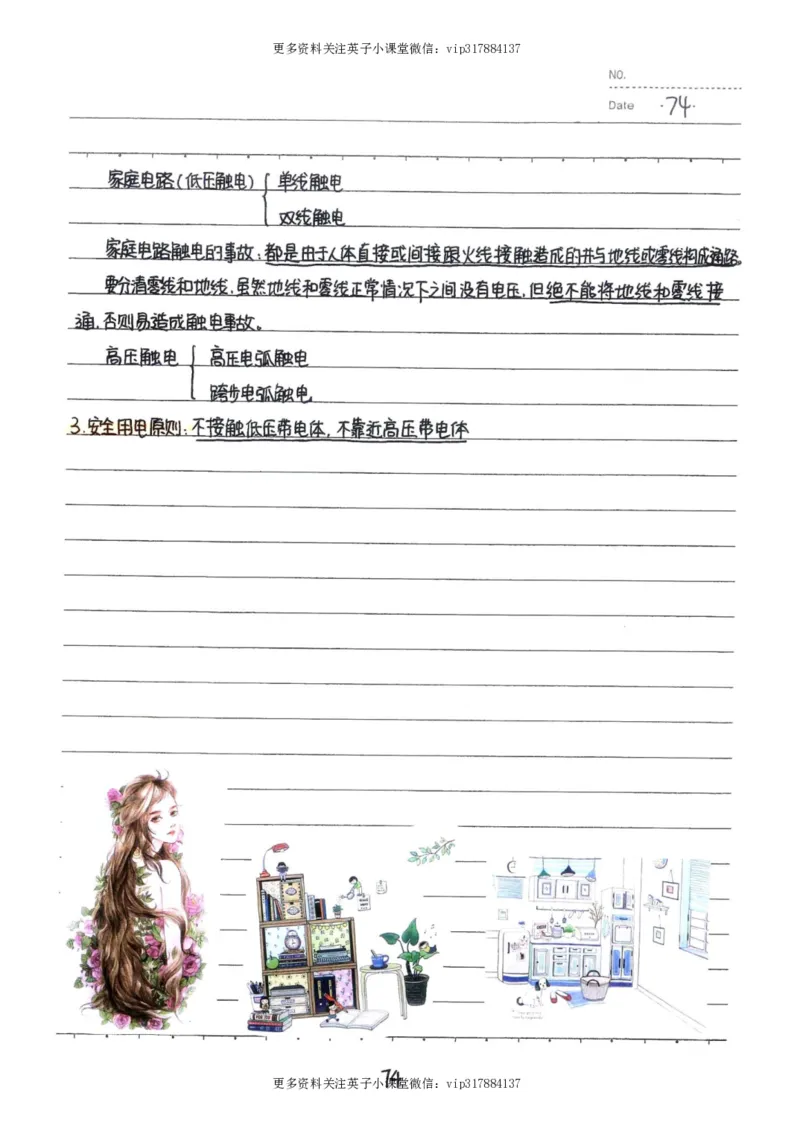 更多资料关注英子小课堂微信：vip317884137
NO.
Date ·74·
家庭电路(低压触电) { 单线触电
双线触电
家庭电路触电的事故：都是由于人体直接或间接跟火线接触造成的并与地线或零线构成通路。
要分清零线和地线，虽然地线和零线正常情况下之间没有电压，但绝不能将地线和零线接
通，否则易造成触电事故。
高压触电 { 高压电弧触电
跨步电弧触电
3.安全用电原则：不接触低压带电体，不靠近高压带电体
74
更多资料关注英子小课堂微信：vip317884137